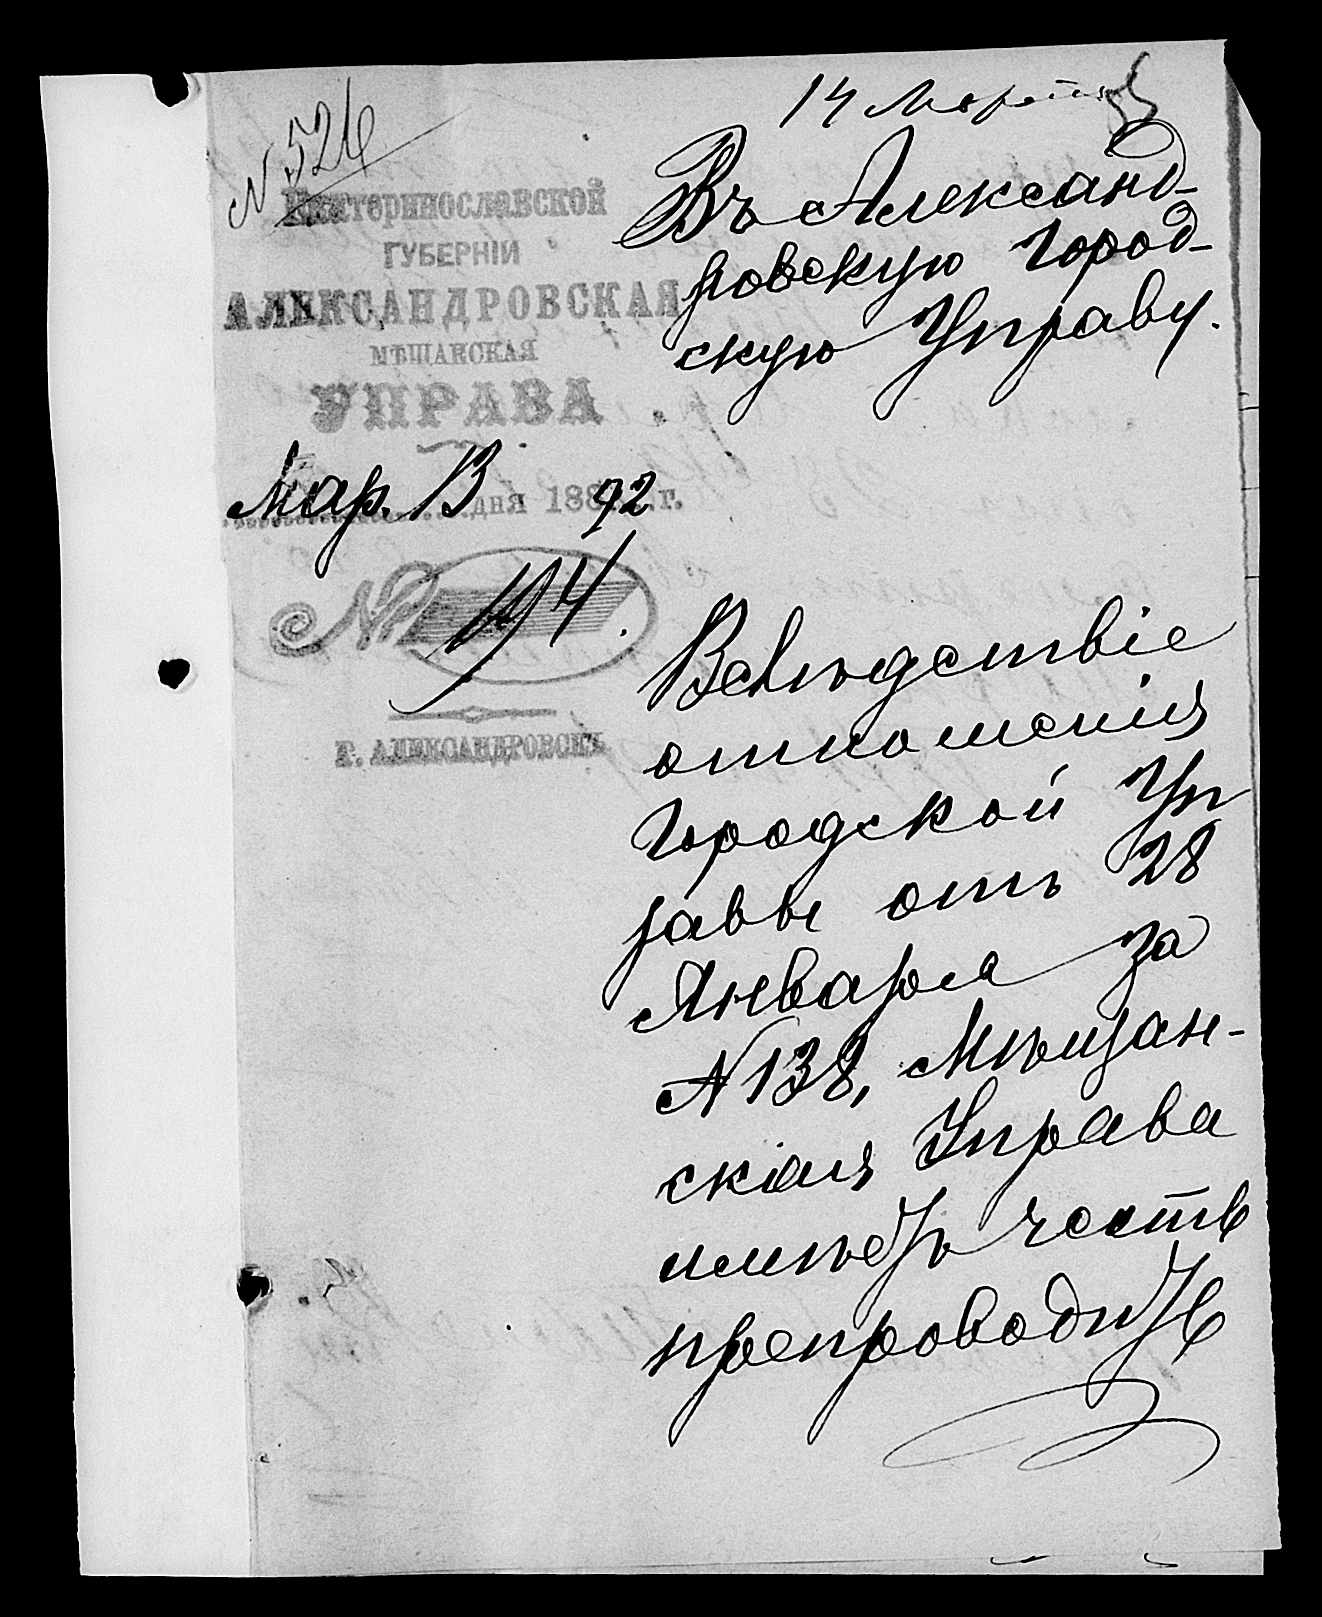 N 526
14 Марта
Екатеринославской
ГУБЕРНІИ
АЛЕКСАНДРОВСКАЯ
МѢЩАНСКАЯ
УПРАВА
Мар. 13 дня 1892 г.
№ 194.
Г. АЛЕКСАНДРОВСКЪ
Въ Александ-
ровскую Город-
скую Управу.
Вслѣдствіе
отношенія
Городской Уп
равы отъ 28
Января за
N 138, Мѣщан-
ская Управа
имѣетъ честь
препроводить